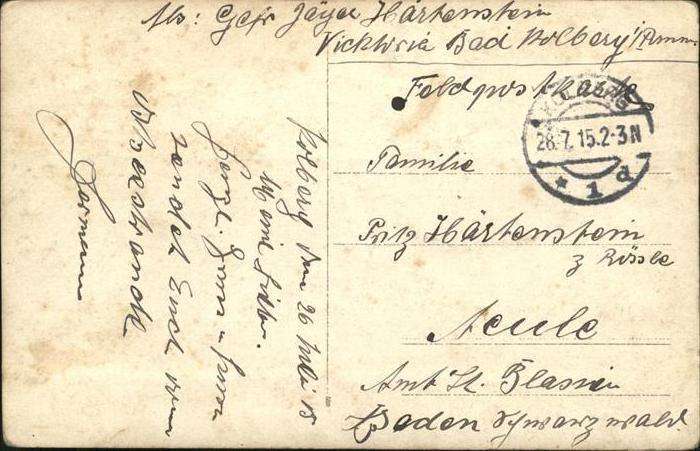 Abs: Gefr Jäger Härtenstein
Vicktoria Bad Kolberg i/Pomm
Feldpostkarte
KOLBERG
28.7.15.2-3N
* 1 d
Familie
Fritz Härtenstein
z Rössle
Aeule
Amt St. Blasien
Baden Schwarzwald.
Kolberg den 26 Juli 15
Meine Lieben.
Herzl. Gruss u Kuss
sendet Euch vom
Ostseestrande
Hermann